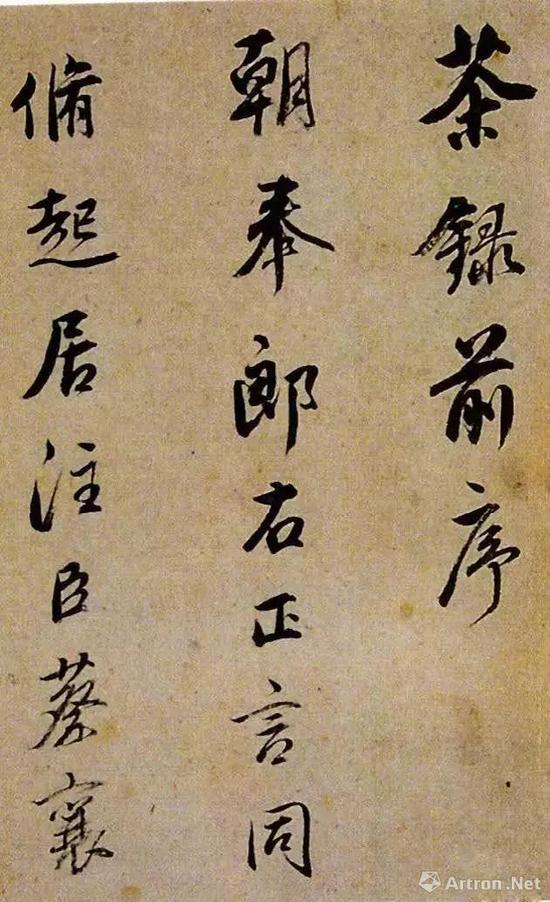 茶録前序
朝奉郎右正言同
脩起居注臣蔡襄
Artron.Net